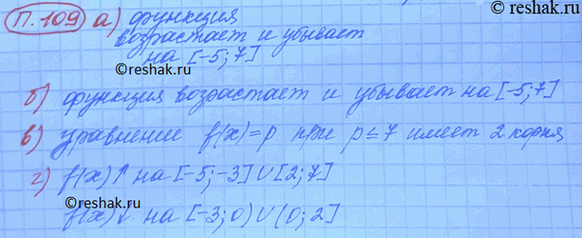 П. 109 а) функция
возрастает и убывает
на [-5; 7]
©reshak.ru
©reshak.ru
б) функция возрастает и убывает на [-5; 7]
в) уравнение f(x)=p при p≤7 имеет 2 корня
г) f(x)↑ на [-5; -3] ∪ [2; 7]
©reshak.ru
f(x)↓ на [-3; 0) ∪ (0; 2]